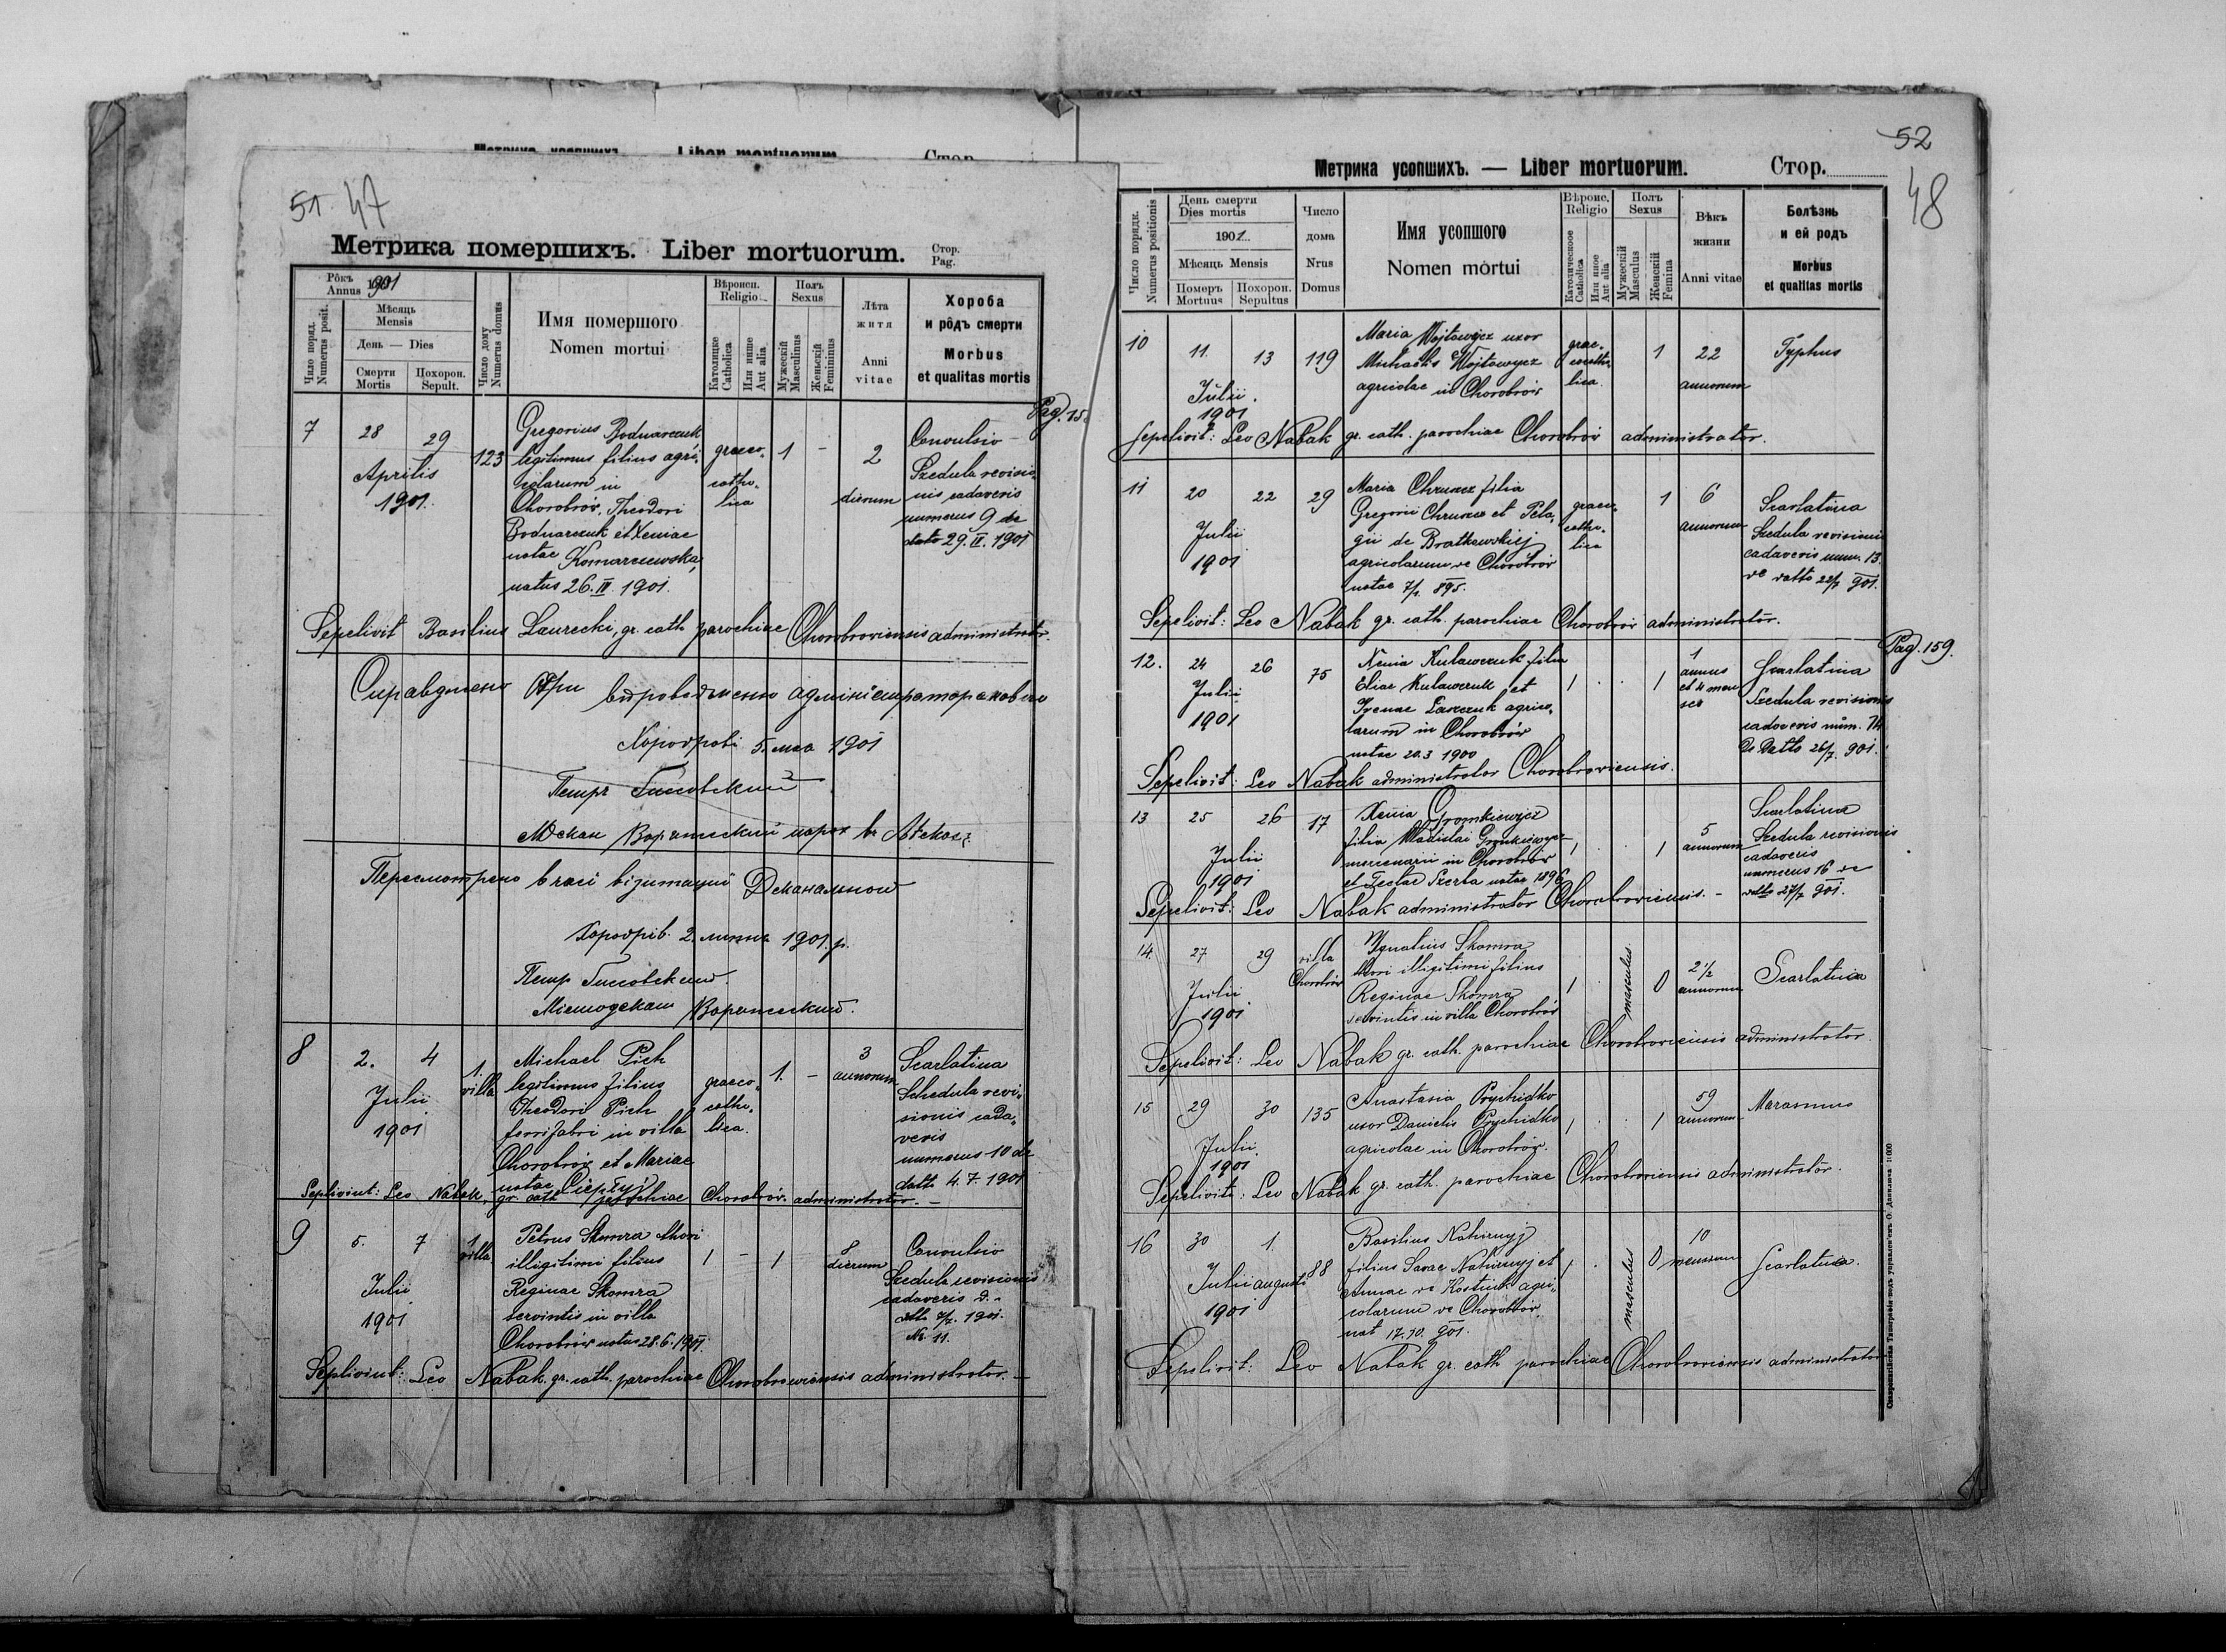 51 47
Метрика помершихъ. Liber mortuorum. Стор. Pag.
Рôкъ Annus 1901
Число поряд. Numerus posit.
Мѣсяць Mensis
День — Dies
Смерти Mortis
Похорон. Sepult.
Число дому Numerus domus
Имя помершого
Nomen mortui
Вѣроисп. Religio
Католицке Catholica
Или инше Aut alia
Полъ Sexus
Мужескій Masculinus
Женьскій Femininus
Лѣта житя
Anni vitae
Хороба и рôдъ смерти
Morbus et qualitas mortis
Pag. 15
7 28 29 Aprilis 1901. 123
Gregorius Bodnarczuk
legitimus filius agri-
colarum in
Chorobrów, Theodori
Bodnarczuk et Xeniae
natae Komarczewska,
natus 26. IV. 1901.
graeco-
catho-
lica
1 -
2 dierum
Convulsio
Szedula revisio-
nis cadaveris
numerus 9 de
dato 29. IV. 1901
Sepelivit Basilius Laurecki, gr. cath. parochiae Chorobroviensis administrator.
Справджено при
5. мая 1901
Петръ
Переглотрено в часі візитациї Деканальної
Хоробрів 2. липня 1901. р.
Петр
8 2. 4 Julii 1901 1. villa
Michael Pich
legitimus filius
Theodori Pich
ferrifabri in villa
Chorobrów et Mariae
natae Ciepłyj
graeco-
catho-
lica.
1. -
3 annorum
Scarlatina
Schedula revi-
sionis cada-
veris
numerus 10 de
datto 4. 7. 1901
Seplivint: Leo Nabak, gr. cath. parochiae Chorobrów administrator. -
9 5. 7 Julii 1901 1 villa
Petrus Skomra thori
illigitimi filius
Reginae Skomra
servintis in villa
Chorobrów natus 28. 6. 1901.
1 - 1
8 dierum
Convulsio
Szedula revisionis
cadaveris d.
datto 7/7. 1901.
Nr. 11.
Seplivint: Leo Nabak. gr. cath. parochiae Chorobrowiensis administrator. -
52
48
Метрика усопшихъ. — Liber mortuorum. Стор.
Число порядк. Numerus positionis
День смерти Dies mortis
1901.
Мѣсяць Mensis
Померъ Mortuus
Похорон. Sepultus
Число дома Nrus Domus
Имя усопшого
Nomen mortui
Вѣроис. Religio
Католическое Catholica
Или иное Aut alia
Полъ Sexus
Мужескій Masculus
Женскій Femina
Вѣкъ жизни
Anni vitae
Болѣзнь и ей родъ
Morbus et qualitas mortis
10 11. 13 Julii. 1901 119
Maria Wojtowycz uxor
Michaelis Wojtowycz
agricolae in Chorobrów
graeco-catho-
lica.
1
22 annorum
Typhus
Sepelivit: Leo Nabak gr. cath. parochiae Chorobrów administrator.
11 20 22 Julii 1901 29
Maria Chrunez filia
Gregorii Chrunez et Pela-
gii de Bratkowskiej
agricolarum de Chorobrów
natae 895.
graeco-
catho-
lica
1
6 annorum
Scarlatina
Szedula revisionis
cadaveris num. 13.
de datto 22/7 901.
Sepelivit: Leo Nabak gr. cath. parochiae Chorobrów administrator.
Pag. 159.
12. 24 26 Julii 1901 75
Xenia Kulawczuk filia
Eliae Kulawczuk et
Irenae agrico-
larum in Chorobrów
natae 20.3 1900
1 . . 1
1 annus
et 4 men
ses
Scarlatina
Szedula revisionis
cadaveris num. 14
de datto 26/7. 901.
Sepelivit: Leo Nabak administrator Chorobroviensis.
13 25 26 Julii 1901 17
Xenia Gromkiewycz
filia Wladislai Gromkiewycz
mercenarii in Chorobrów
et Teclae Szerba natae 1896
1 . . 1
5 annorum
Scarlatina
Szedula revisionis
cadaveris
numerus 16 de
datto 27/7 901.
Sepelivit: Leo Nabak administrator Chorobroviensis. -
14. 27 29 Julii 1901 villa Chorobrów
Ignatius Skomra
thori illigitimi filius
Reginae Skomra
servintis in villa Chorobrów
1 . masculus 0
2 1/2 annorum
Scarlatina
Sepelivit: Leo Nabak gr. cath. parochiae Chorobroviensis administrator.
15 29 30 Julii 1901 135
Anastasia Prychidko
uxor Danielis Prychidko
agricolae in Chorobrów.
1 . . 1
59 annorum
Marasmus
Sepelivit: Leo Nabak gr. cath. parochiae Chorobroviensis administrator.
16 30 1. Julii augusti 1901 88
Basilius Nahirnyj
filius Savae Nahirnyj et
Annae de Kostiuk agri-
colarum de Chorobrów
nat 17. 10. 901.
1 . masculus 0
10 mensium
Scarlatina.
Sepelivit: Leo Nabak gr. cath. parochiae Chorobroviensis administrator